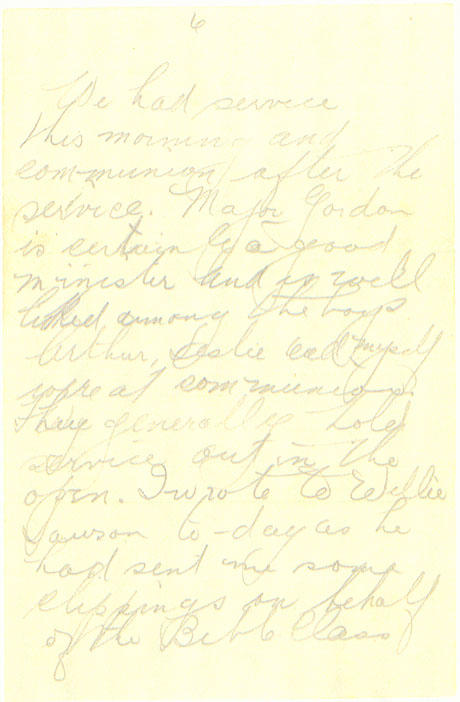 6
We had service
this morning and
communion after the
service. Major Gordon
is certainly a good
minister and is well
liked among the boys
Arthur, Leslie and myself
were at communion.
They generally hold
service out in the
open. I wrote to Willie
Lawson to-day as he
had sent me some
clippings on behalf
of the Bible Class